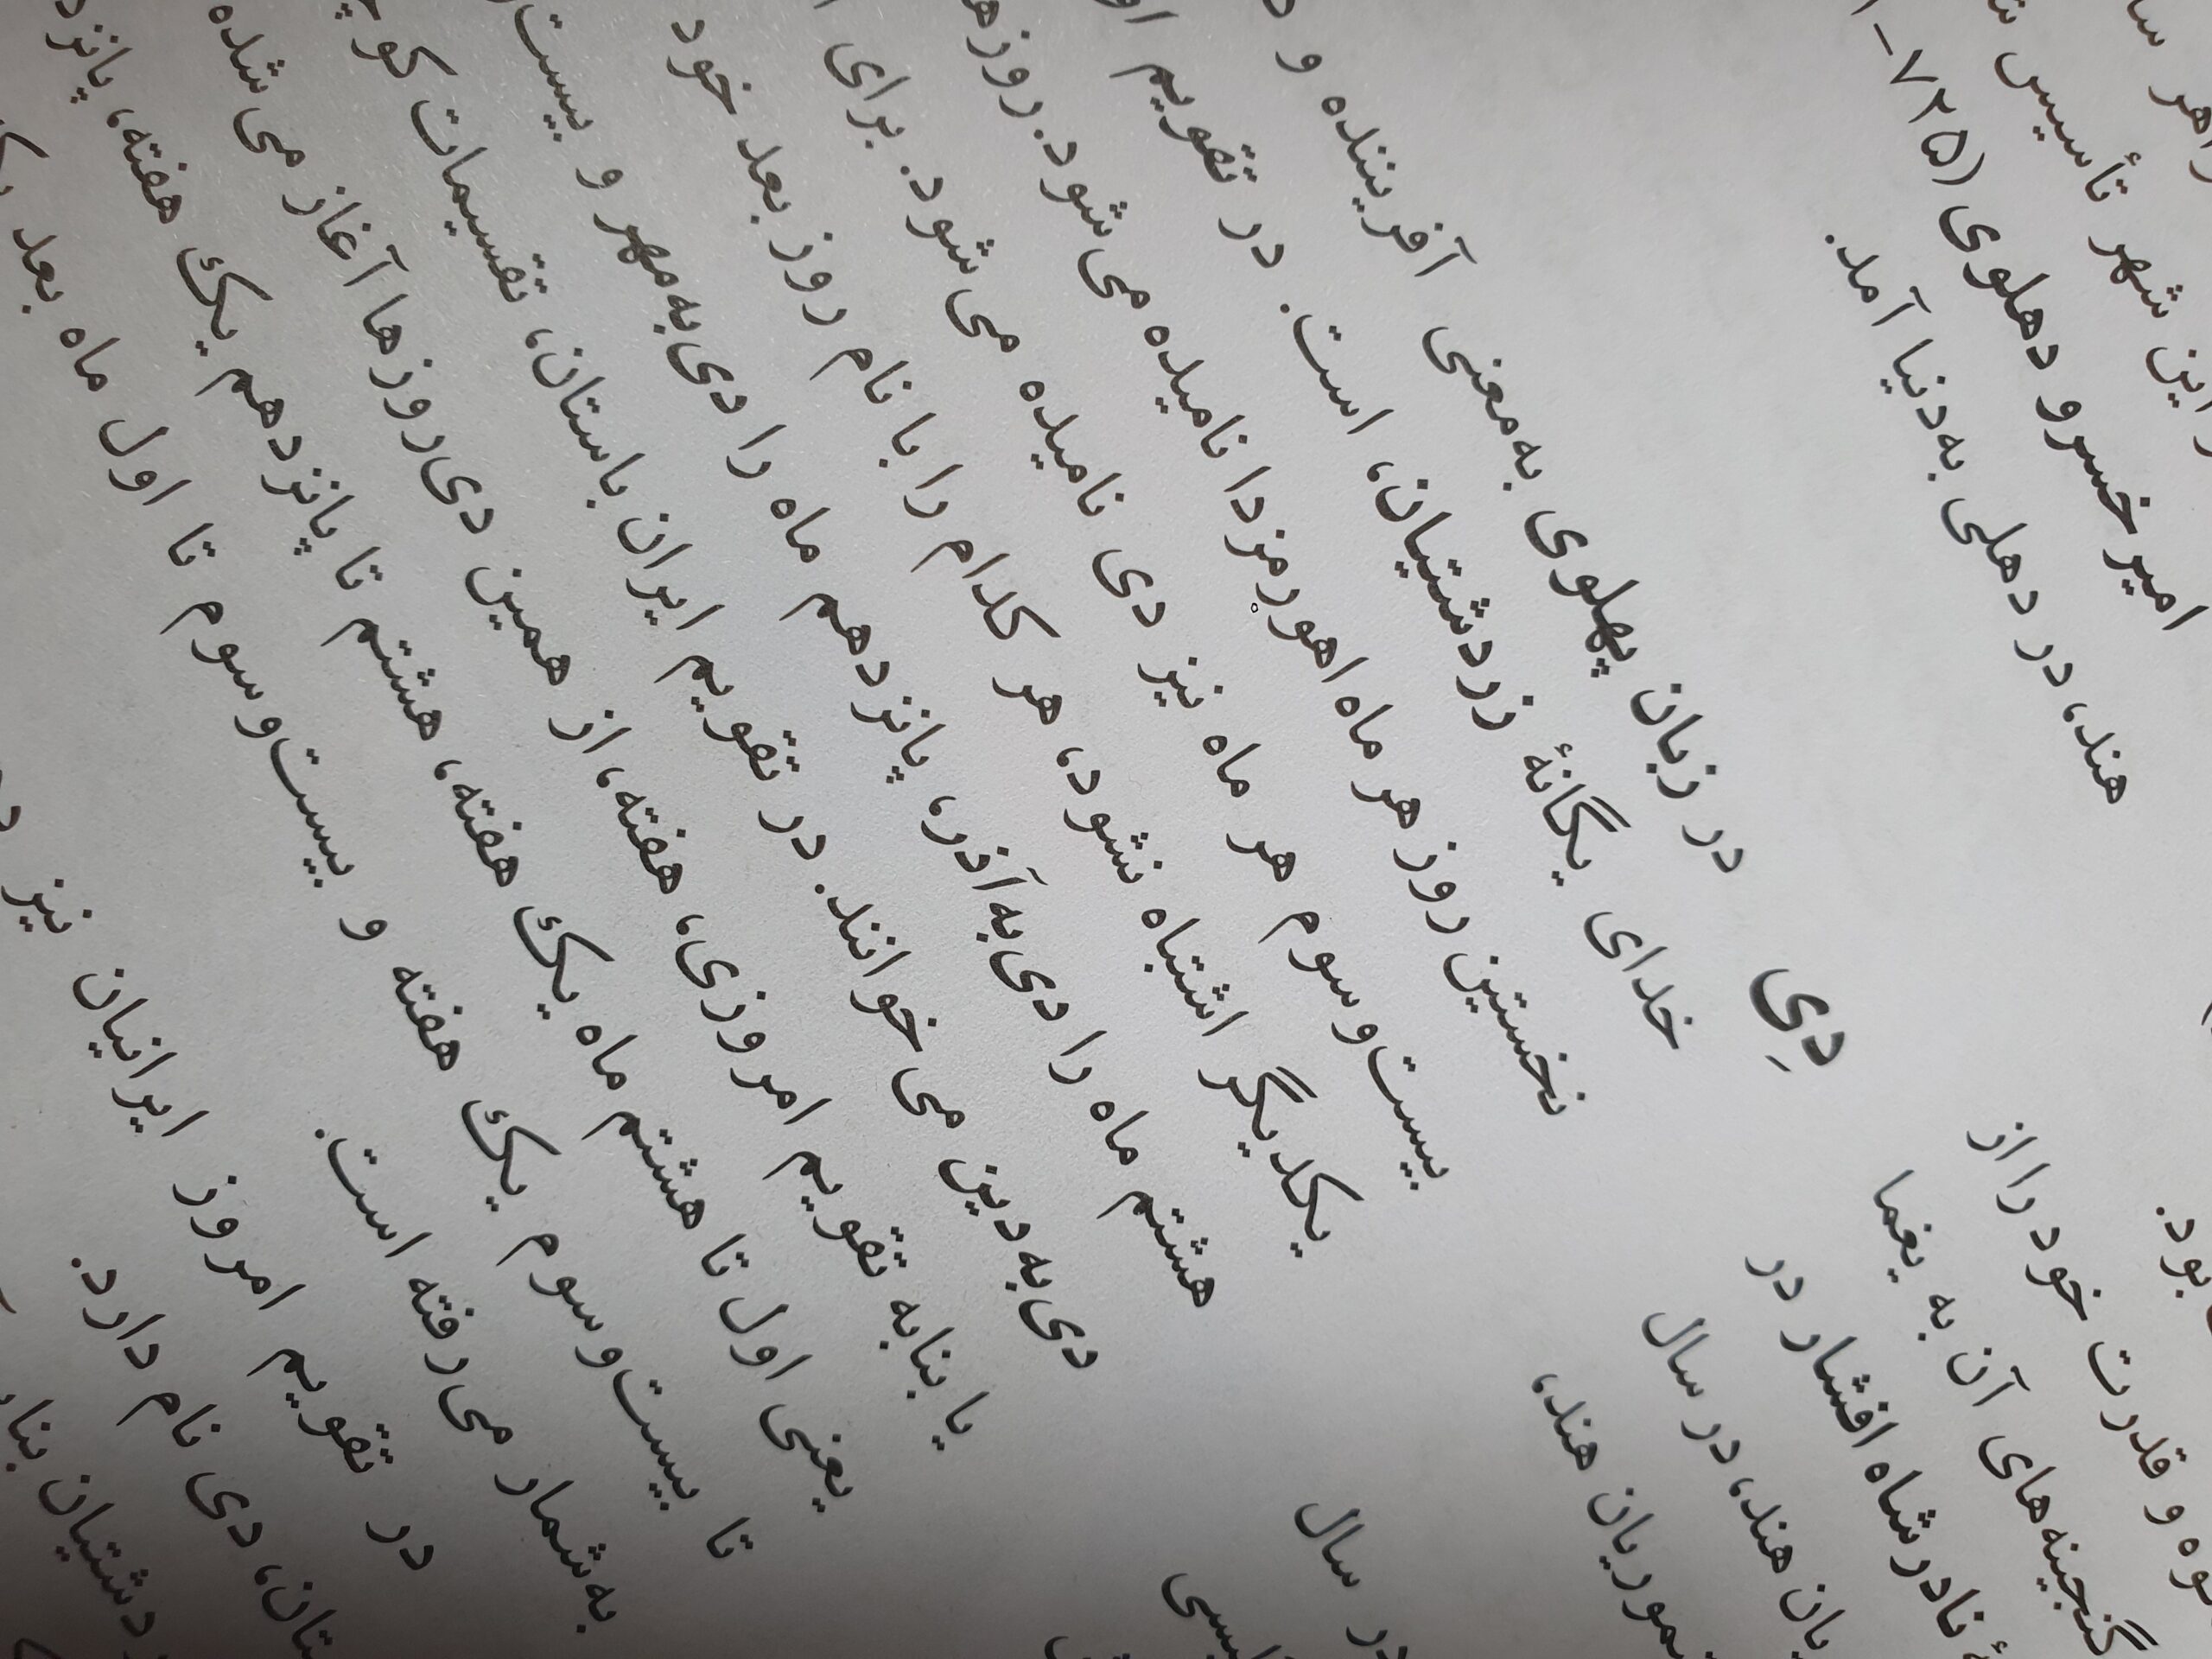 این شهر تأسیس
امیر خسرو دهلوی (۷۲۵_
هند، در دهلی به‌دنیا آمد.
دِی در زبان پهلوی به‌معنی آفریننده و
خدای یگانهٔ زردشتیان، است. در تقویم
نخستین روز هر ماه اهورمزدا نامیده می‌شود.
بیست‌وسوم هر ماه نیز دی نامیده می‌شود. برای
یکدیگر اشتباه نشود، هر کدام را با نام روز بعد خود
هشتم ماه را دی‌به‌آذر، پانزدهم ماه را دی‌به‌مهر و بیست
دی‌به‌دین می‌خوانند. در تقویم ایران باستان، تقسیمات
یا بنابه تقویم امروزی، هفته، از همین دی‌روزها آغاز می‌شده
یعنی اول تا هشتم ماه یک هفته، هشتم تا پانزدهم یک هفته،
تا بیست‌وسوم یک هفته و بیست‌وسوم تا اول ماه بعد
به‌شمار می‌رفته است.
در تقویم امروز ایرانیان نیز
دی نام دارد.
بود.
و قدرت خود را از
گنجینه‌های آن به یغما
نادرشاه افشار در
هند، در سال
هند،
در سال